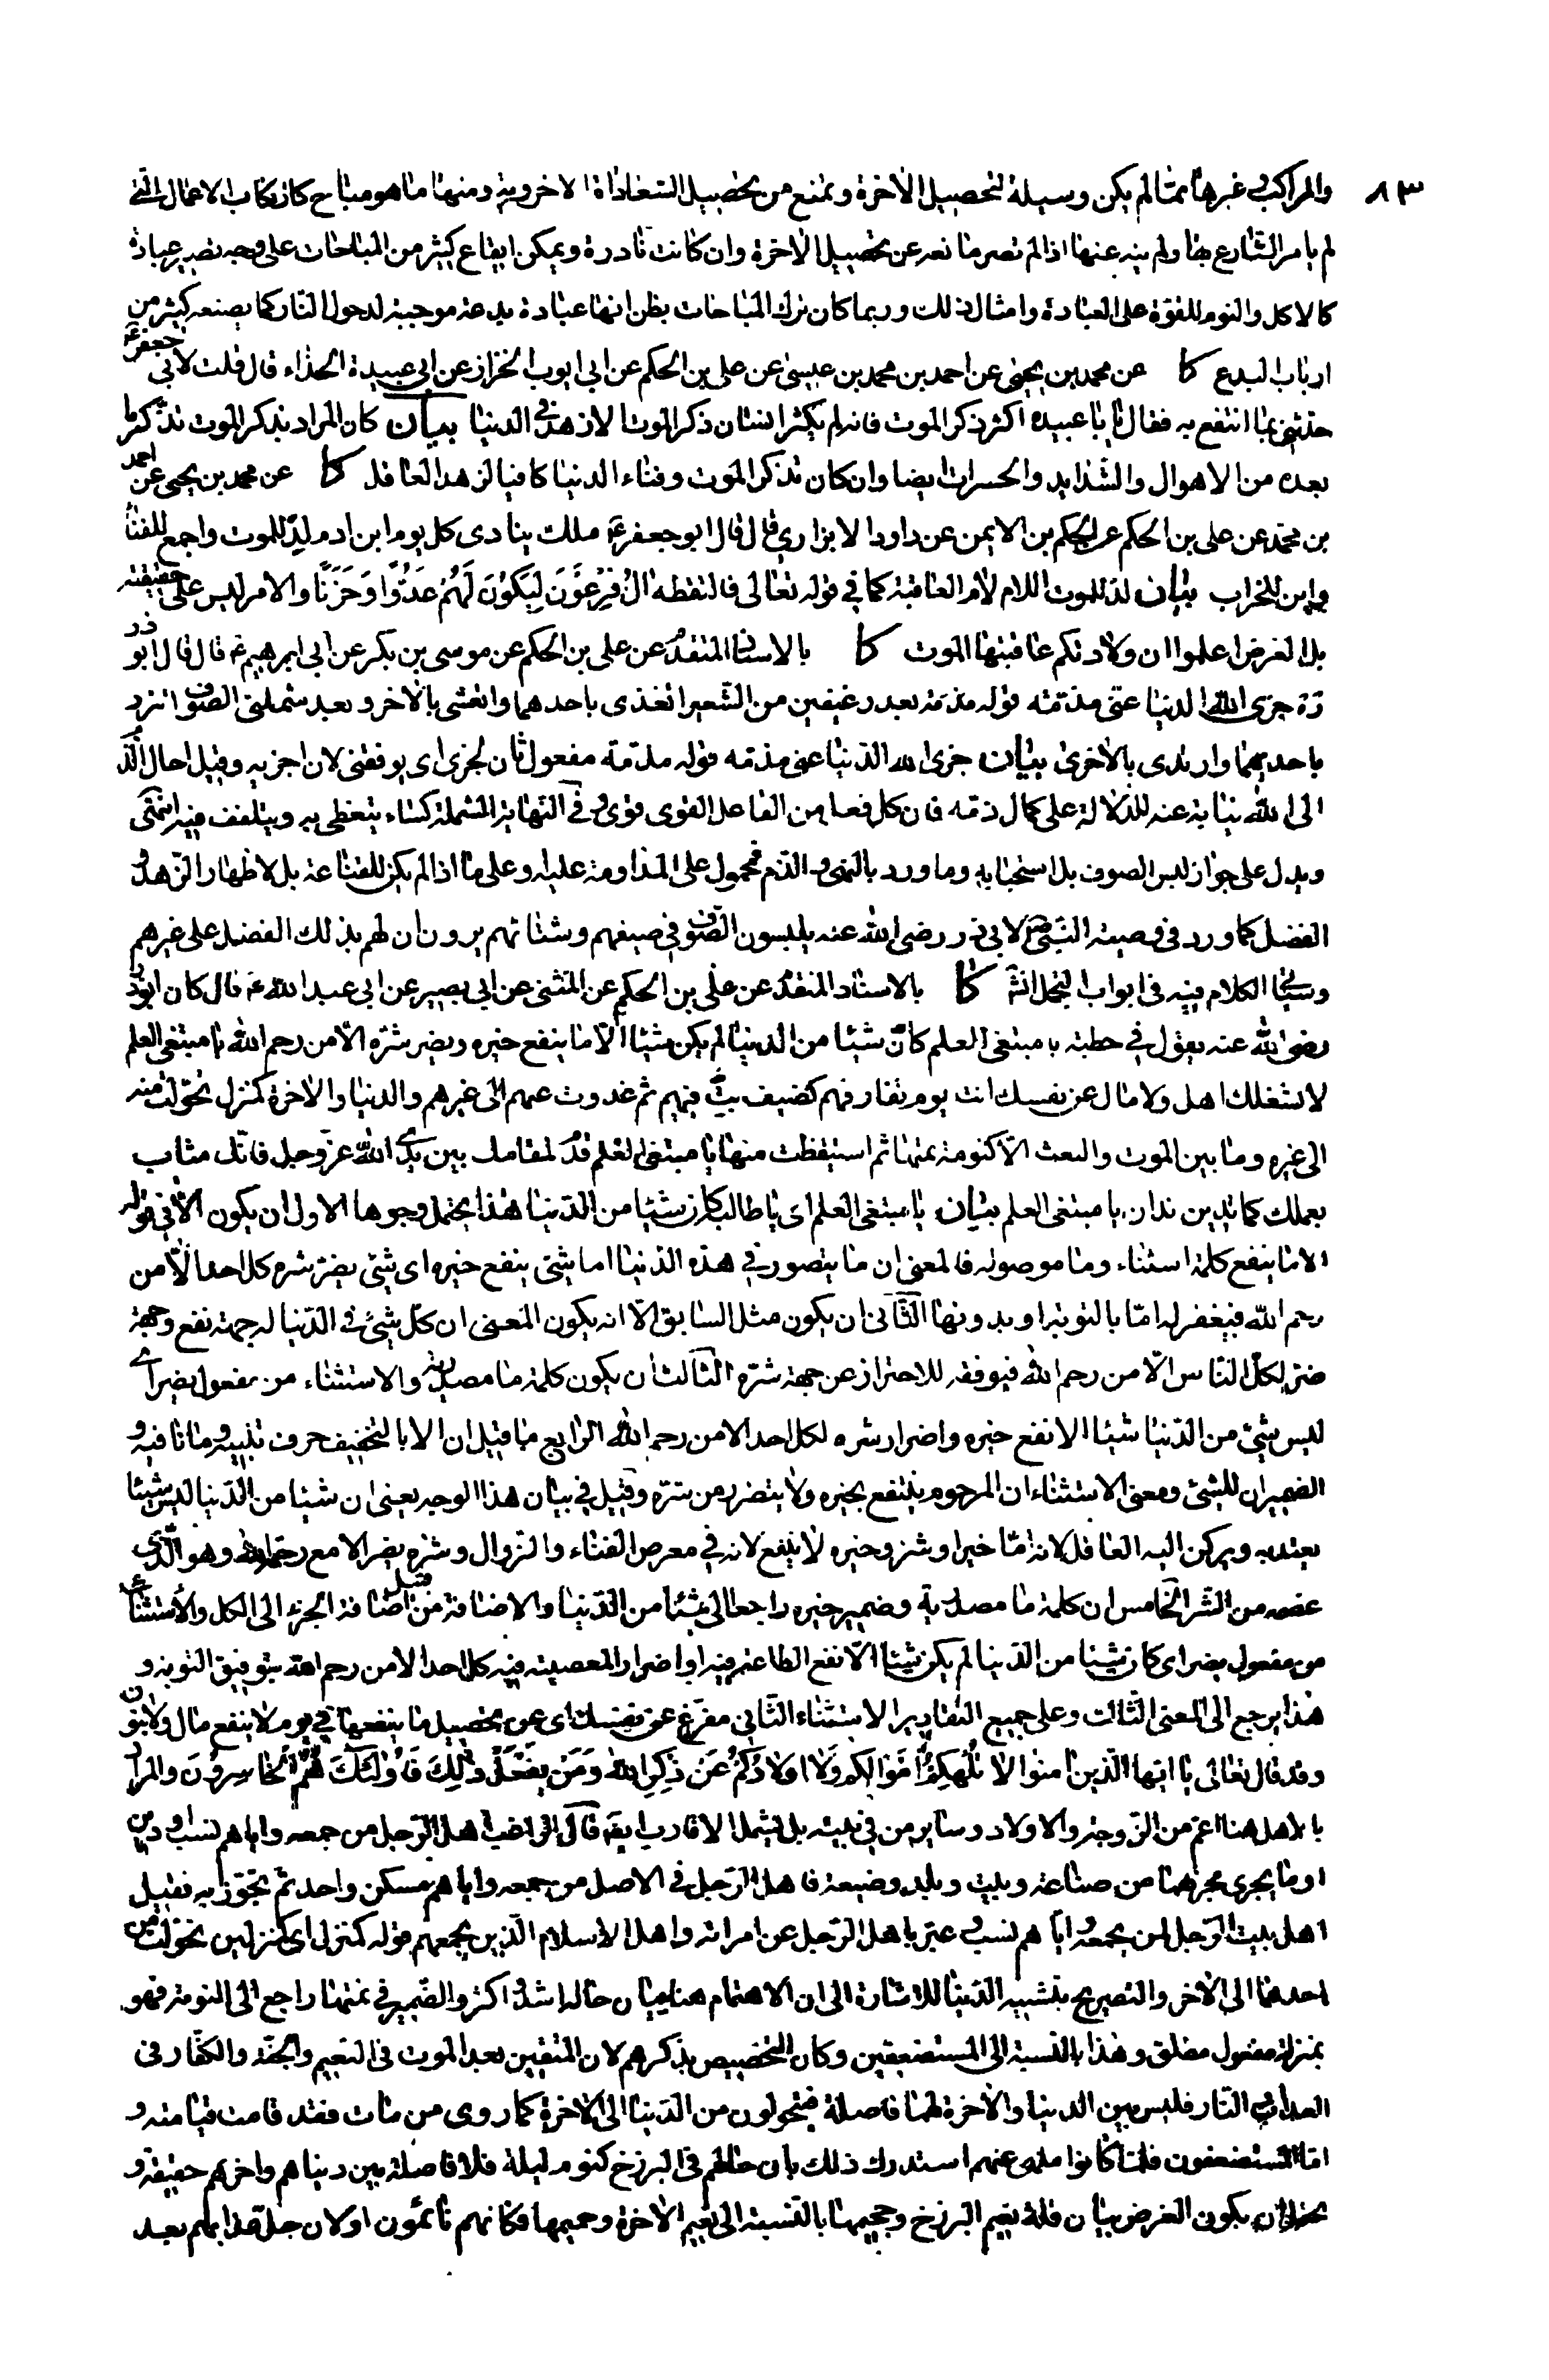 ٨٣
والمراكب وغيرها مما لم يكن وسيلة لتحصيل الاخرة وتمنع من تحصيل السعادات الاخروية ومنها ما هو مباح كارتكاب الاعمال التي
لم يامر الشارع بها ولم ينه عنها اذا لم تصر مانعه عن تحصيل الاخرة وان كانت نادرة ويمكن ايقاع كثير من المباحات على وجه تصير عبادة
كالاكل والنوم للقوة على العبادة وامثال ذلك وربما كان ترك المباحات بظن انها عبادة بدعة موجبة لدخول النار كما يصنعه كثير من
ارباب البدع كا عن محمد بن يحيى عن احمد بن محمد بن عيسى عن علي بن الحكم عن ابي ايوب الخزاز عن ابي عبيدة الحذاء قال قلت لابي جعفر ع
حدثني بما انتفع به فقال يا با عبيده اكثر ذكر الموت فانه لم يكثر انسان ذكر الموت الا زهد في الدنيا بيان كان المراد بذكر الموت تذكر ما
بعده من الاهوال والشدايد والحسرات ايضا وان كان تذكر الموت وفناء الدنيا كافيا لزهد العاقل كا عن محمد بن يحيى عن احمد
بن محمد عن علي بن الحكم عن الحكم بن الايمن عن داود الابزاري قال قال ابو جعفر ع ملك ينادى كل يوم ابن ادم لد للموت واجمع للفناء
وابن للخراب بيان لد للموت اللام لام العاقبة كما في قوله تعالى فالتقطه ال فرعون ليكون لهم عدوا وحزنا والامر ليس على حقيقته
بل الغرض اعلموا ان ولادتكم عاقبتها الموت كا بالاسناد المتقدم عن علي بن الحكم عن موسى بن بكر عن ابي ابرهيم ع قال قال ابو ذر
ره جزى الله الدنيا عني مذمته قوله مذمة بعد رغيفين من الشعير اتغذى باحدهما واتعشى بالاخر وبعد شملتي الصوف اتزر
باحديهما وارتدى بالاخرى بيان جزى الله الدنيا عني مذمه قوله مذمة مفعول ثان لجزى اى يوفقني لان اجزيه وقيل احال الذم
الى الله نيابة عنه للدلالة على كمال ذمه فان كل فعل من الفاعل القوى قوى وفي النهاية الشملة كساء يتغطى به ويتلفف فيه انتهى
ويدل على جواز لبس الصوف بل استحبابه وما ورد بالنهى والذم فمحمول على المداومة عليه وعلى ما اذا لم يكن للقناعة بل لاظهار الزهد و
الفضل كما ورد في وصية النبي ص لابي ذر رضى الله عنه يلبسون الصوف في صيفهم وشتائهم يرون ان لهم بذلك الفضل على غيرهم
وسياتي الكلام فيه في ابواب التجمل انش كا بالاسناد المتقدم عن علي بن الحكم عن المثنى عن ابي بصير عن ابي عبد الله ع قال كان ابو ذر
رضى الله عنه يقول في خطبته يا مبتغى العلم كان شيئا من الدنيا لم يكن شيئا الا ما ينفع خيره ويضر شره الا من رحم الله يا مبتغى العلم
لا تشغلك اهل ولا مال عن نفسك انت يوم تفارقهم كضيف بت فيهم ثم غدوت عنهم الى غيرهم والدنيا والاخرة كمنزل تحولت منه
الى غيره وما بين الموت والبعث الا كنومة نمتها ثم استيقظت منها يا مبتغى العلم قدم لمقامك بين يدي الله عز وجل فانك مثاب
بعملك كما تدين تدان يا مبتغى العلم بيان يا مبتغى العلم اى يا طالبه كان شيئا من الدنيا هذا يحتمل وجوها الاول ان يكون الا في قوله
الا ما ينفع كلمة استثناء وما موصولة فالمعنى ان ما يتصور في هذه الدنيا اما شئ ينفع خيره او شئ يضر شره كل احد الا من
رحم الله فيغفر له اما بالتوبة او بدونها الثاني ان يكون مثل السابق الا انه يكون المعنى ان كل شئ في الدنيا له جهة نفع وجهة
ضر لكل الناس الا من رحم الله فيوفقه للاحتراز عن جهة شره الثالث ان يكون كلمة ما مصدرية والاستثناء من مفعول يضر اى
ليس شئ من الدنيا شيئا الا نفع خيره واضرار شره لكل احد الا من رحم الله الرابع ما قيل ان الا بالتخفيف حرف تنبيه وما نافيه و
الضميران للشئ ومعنى الاستثناء ان المرحوم ينتفع بخيره ولا يتضرر من شره وقيل في بيان هذا الوجه يعنى ان شيئا من الدنيا ليس شيئا
يعتد به ويركن اليه العاقل لانه اما خير او شر وخيره لا ينفع لانه في معرض الفناء والزوال وشره يضر الا مع رحمة الله وهو الذي
عصمه من الشر الخامس ان كلمة ما مصدرية وضمير خيره راجعا الى شيئا من الدنيا والاضافة من قبيل اضافة الجزء الى الكل والاستثناء
من مفعول يضر اى كان شيئا من الدنيا لم يكن شيئا الا نفع الطاعة فيه او اضرار المعصية فيه كل احد الا من رحم الله بتوفيق التوبة و
هذا يرجع الى المعنى الثالث وعلى جميع التقادير الاستثناء الثاني مفرغ عن نفسك اى عن تحصيل ما ينفعها في يوم لا ينفع مال ولا بنون
وقد قال تعالى يا ايها الذين امنوا لا تلهكم اموالكم ولا اولادكم عن ذكر الله ومن يفعل ذلك فاولئك هم الخاسرون والمراد
بالاهل هنا اعم من الزوجة والاولاد وساير من في بيته بل يشمل الاقارب ايضا قال الراغب اهل الرجل من جمعه واياهم نسب او دين
او ما يجرى مجريهما من صناعة وبيت وبلد وضيعة فاهل الرجل في الاصل من جمعه واياهم مسكن واحد ثم تجوز به فقيل
اهل بيت الرجل لمن يجمعه واياهم نسب وعبر باهل الرجل عن امراته واهل الاسلام الذين يجمعهم قوله كمنزل اى كمنزلين تحولت من
احدهما الى الاخر والتصريح بتشبيه الدنيا للاشارة الى ان الاهتمام هنا ببيان حالها اشد واكثر والضمير في نمتها راجع الى النومة فهو
بمنزلة مفعول مطلق وهذا بالنسبة الى المستضعفين وكان التخصيص بذكرهم لان المتقين بعد الموت في النعيم والجنة والكفار في
العذاب والنار فليس بين الدنيا والاخرة لهما فاصلة فيتحولون من الدنيا الى الاخرة كما روى من مات فقد قامت قيامته و
اما المستضعفون فلما كانوا ملهى عنهم استدرك ذلك بان حالهم في البرزخ كنوم ليلة فلا فاصلة بين دنياهم واخريهم حقيقة و
يحتمل ان يكون الغرض بيان قلة نعيم البرزخ وجحيمها بالنسبة الى نعيم الاخرة وحميمها فكانهم نائمون او لان جل عذابهم بعد